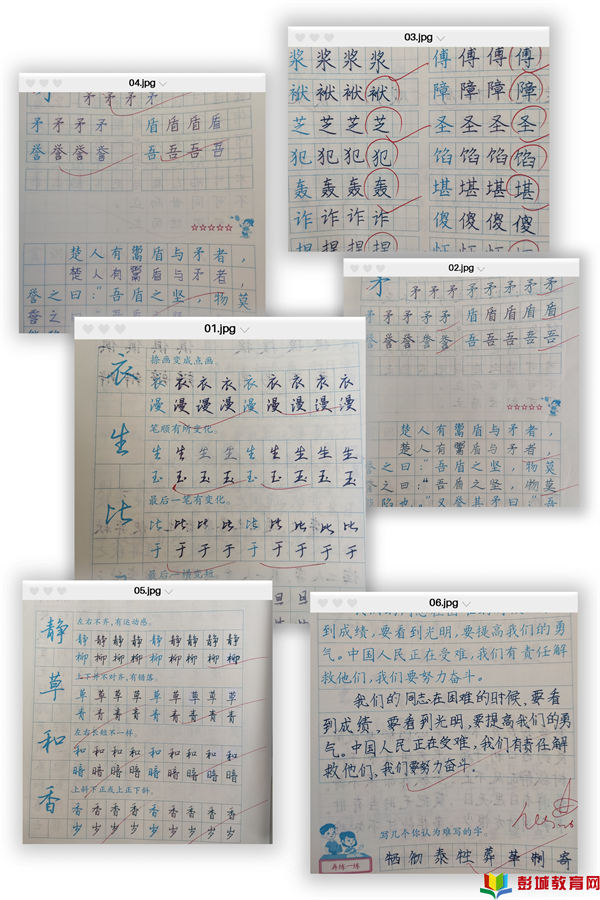 04.jpg
矛 矛 矛 矛
矛 矛 矛 矛 盾 盾 盾 盾
誉 誉 誉 誉 吾 吾 吾 吾
☆☆☆☆☆
楚 人 有 鬻 盾 与 矛 者 ,
楚 人 有 鬻 盾 与 矛 者 ,
誉 之 曰 :“ 吾 盾 之 坚 , 物 莫
誉 之 曰 :“ 吾 盾 之 坚 , 物 莫
03.jpg
浆 浆 浆 浆 傅 傅 傅 傅
袱 袱 袱 袱 障 障 障 障
芝 芝 芝 芝 圣 圣 圣 圣
犯 犯 犯 犯 馅 馅 馅 馅
轰 轰 轰 轰 堪 堪 堪 堪
诈 诈 诈 诈 傻 傻 傻 傻
捏 捏 捏 捏
02.jpg
矛 矛 矛 矛 矛 矛 矛 矛 矛
矛 矛 矛 矛 矛 盾 盾 盾 盾 盾
誉 誉 誉 誉 誉 吾 吾 吾 吾 吾
☆☆☆☆☆
楚 人 有 鬻 盾 与 矛 者 ,
楚 人 有 鬻 盾 与 矛 者 ,
誉 之 曰 :“ 吾 盾 之 坚 , 物 莫
誉 之 曰 :“ 吾 盾 之 坚 , 物 莫
能 陷 也 。” 又 誉 其 矛 曰 :“ 吾
01.jpg
衣 捺画变成点画。
衣 衣 衣 衣 衣 衣 衣 衣 衣
漫 漫 漫 漫 漫 漫 漫 漫 漫
生 笔顺有所变化。
生 生 生 生 生 生 生 生 生
玉 玉 玉 玉 玉 玉 玉 玉 玉
比 最后一笔有变化。
比 比 比 比 比 比 比 比 比
于 于 于 于 于 于 于 于 于
最后一横变短。
05.jpg
静 左右不齐,有运动感。
静 静 静 静 静 静 静 静 静
柳 柳 柳 柳 柳 柳 柳 柳 柳
草 上下并不对齐,有错落。
草 草 草 草 草 草 草 草 草
青 青 青 青 青 青 青 青 青
和 左右长短不一样。
和 和 和 和 和 和 和 和 和
暗 暗 暗 暗 暗 暗 暗 暗 暗
香 上斜下正或上正下斜。
香 香 香 香 香 香 香 香 香
岁 岁 岁 岁 岁 岁 岁 岁 岁
06.jpg
到成绩,要看到光明,要提高我们的勇
气。中国人民正在受难,我们有责任解
救他们,我们要努力奋斗。
我们的同志在困难的时候,要看
到成绩,要看到光明,要提高我们的勇
气。中国人民正在受难,我们有责任解
救他们,我们要努力奋斗。
写几个你认为难写的字。
再练一练
牺 彻 泰 牲 葬 革 制 寄
彭城教育网